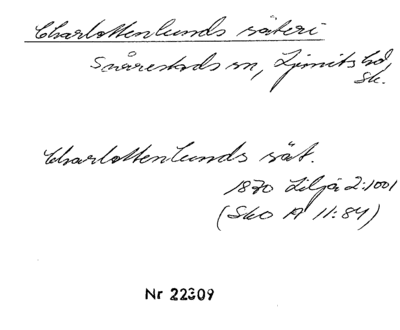 Charlottenlunds säteri
Snårestads sn, Ljunits hd,
Sk.
Charlottenlunds sät.
1870 Liljа 2:1001
(Sko A 11:84)
Nr 22309